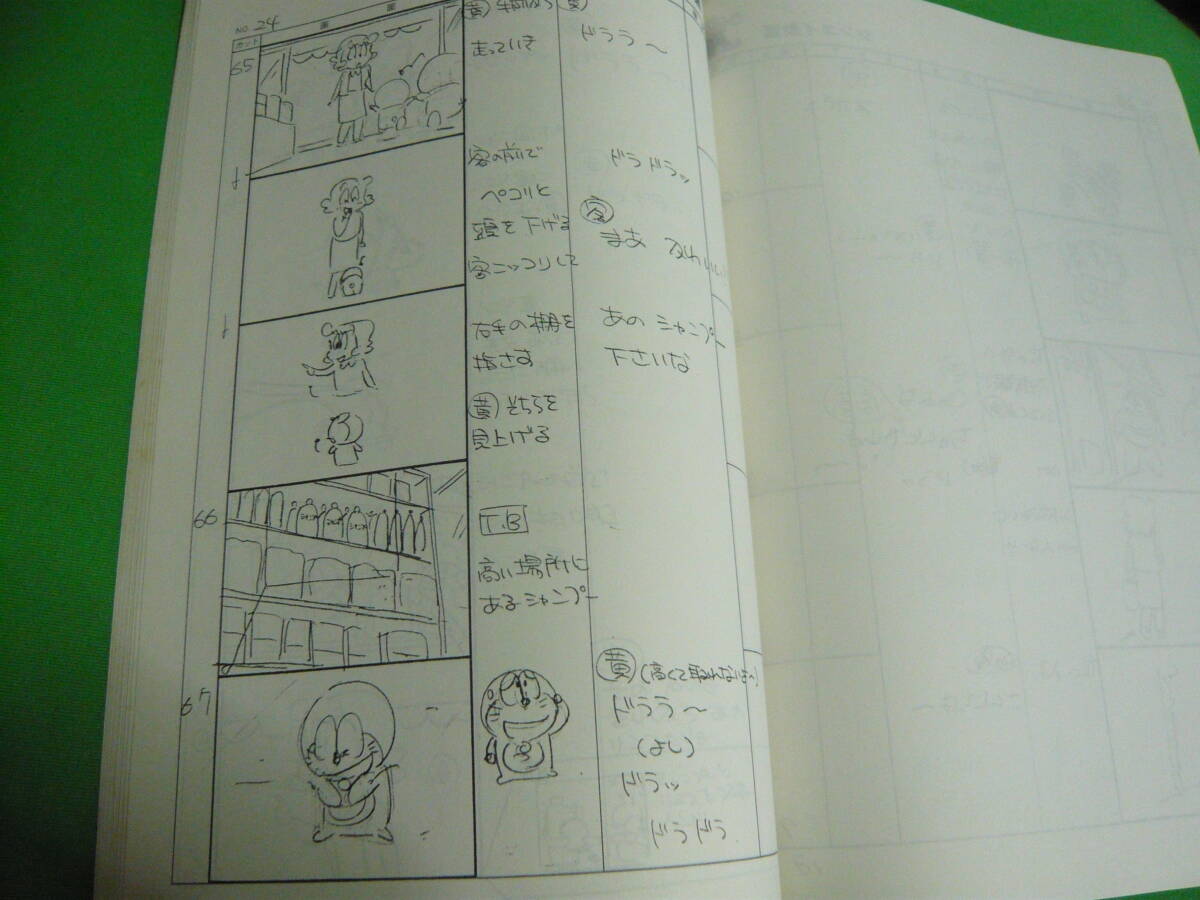 NO. 24
画面
カット
65
走っていき
ドララ〜
客の前で
ペコリと
頭を下げる
客ニッコリして
ドラドラッ
客
まあ かわいい
右手の棚を
指さす
黄 そちらを
見上げる
あの シャンプー
下さいな
66
T.B
高い場所に
あるシャンプー
67
黄 (高くて取れないよ〜)
ドララ〜
(よし)
ドラッ
ドラドラ